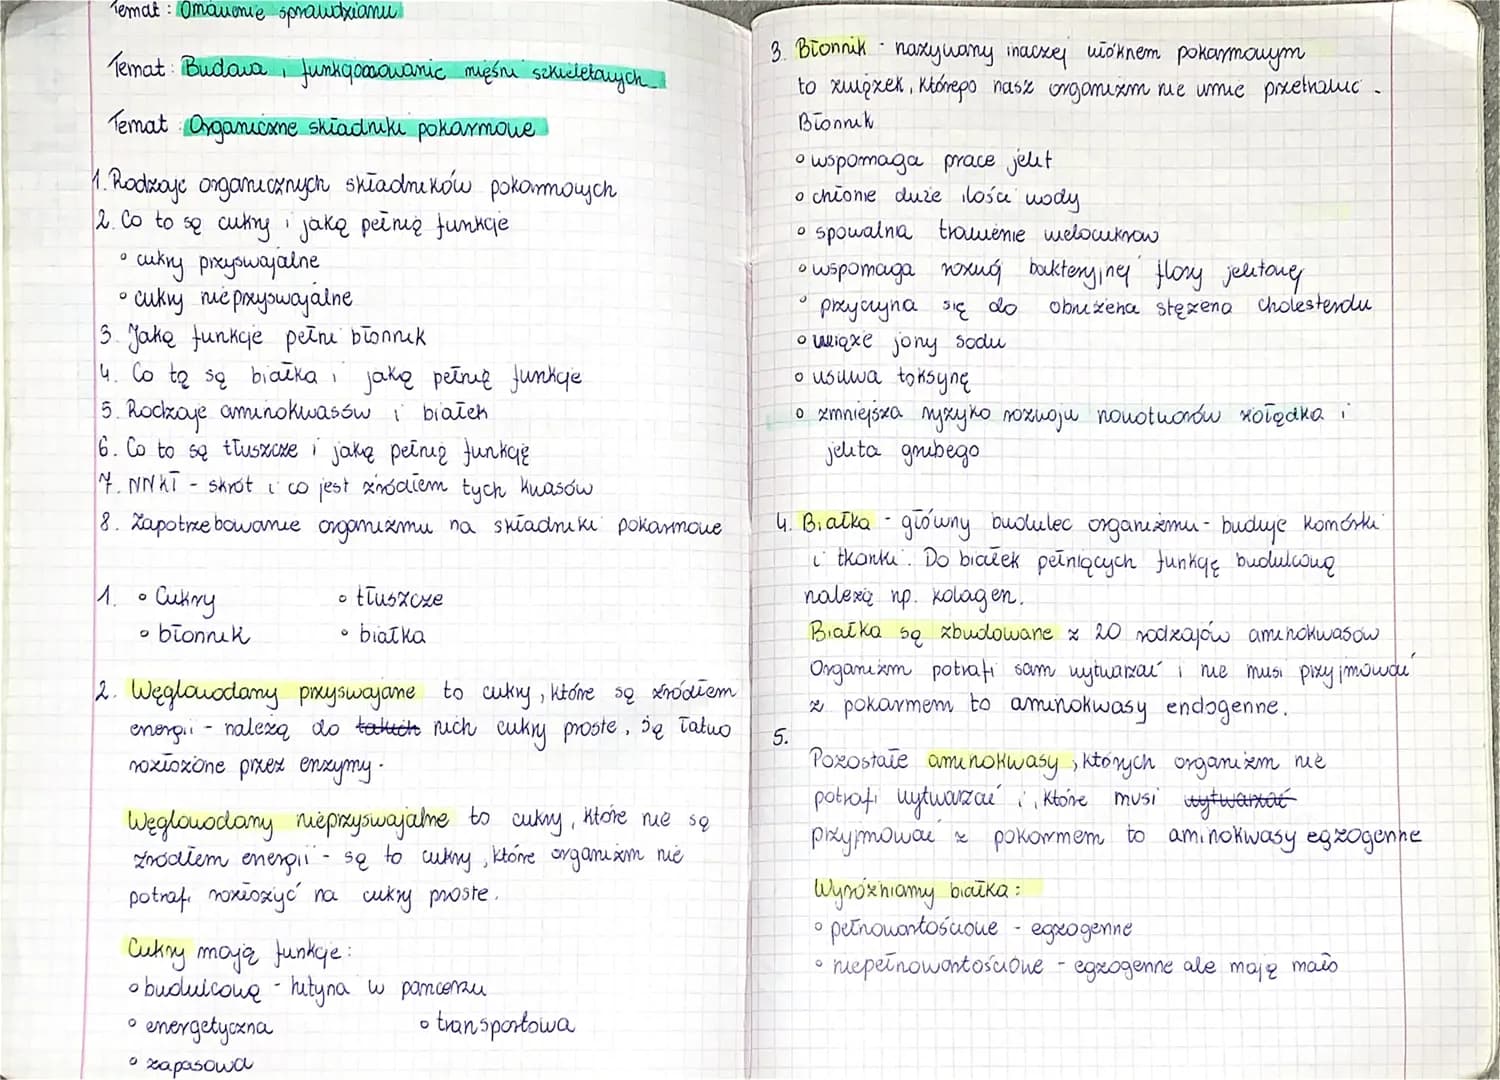 Temat : Omówienie sprawdzianu
Temat : Budowa i funkcjonowanie mięśni szkieletowych
Temat : Organiczne składniki pokarmowe
1. Rodzaje organicznych składników pokarmowych
2. Co to są cukry i jaką pełnią funkcje
• cukry przyswajalne
• cukry nieprzyswajalne
3. Jaką funkcje pełni błonnik
4. Co tą są białka i jaką pełnią funkcje
5. Rodzaje aminokwasów i białek
6. Co to są tłuszcze i jaką pełnią funkcję
7. NNKT - skrót i co jest źródłem tych kwasów
8. Zapotrzebowanie organizmu na składniki pokarmowe
1. • Cukry • tłuszcze
• błonnik • białka
2. Węglowodany przyswajane to cukry, które są źródłem
energii - należą do takich nich cukry proste, są łatwo
rozłożone przez enzymy.
Węglowodany nieprzyswajalne to cukry, które nie są
źródłem energii - są to cukry, które organizm nie
potrafi rozłożyć na cukry proste.
Cukry mają funkcje:
• budulcową - hityna w pancerzu
• energetyczna • transportowa
• zapasowa
3. Błonnik - nazywany inaczej włóknem pokarmowym
to związek, którego nasz organizm nie umie przetrawić.
Błonnik
• wspomaga prace jelit
• chłonie duże ilości wody
• spowalnia trawienie wielocukrow
• wspomaga rozwój bakteryjnej flory jelitowej
• przyczyna się do obniżenia stężenia cholesterolu
• wiąże jony sodu
• usuwa toksynę
• zmniejsza ryzyko rozwoju nowotworów żołądka i
jelita grubego
4. Białka - główny budulec organizmu - buduje komórki
i tkanki. Do białek pełniących funkcję budulcową
należą np. kolagen.
Białka są zbudowane z 20 rodzajów aminokwasów
Organizm potrafi sam wytwarzać i nie musi przyjmować
z pokarmem to aminokwasy endogenne.
5.
Pozostałe aminokwasy, których organizm nie
potrafi wytwarzać i, które musi wytwarzać
przyjmować z pokarmem to aminokwasy egzogenne
Wyróżniamy białka:
• pełnowartościowe - egzogenne
• niepełnowartościowe - egzogenne ale mają mało